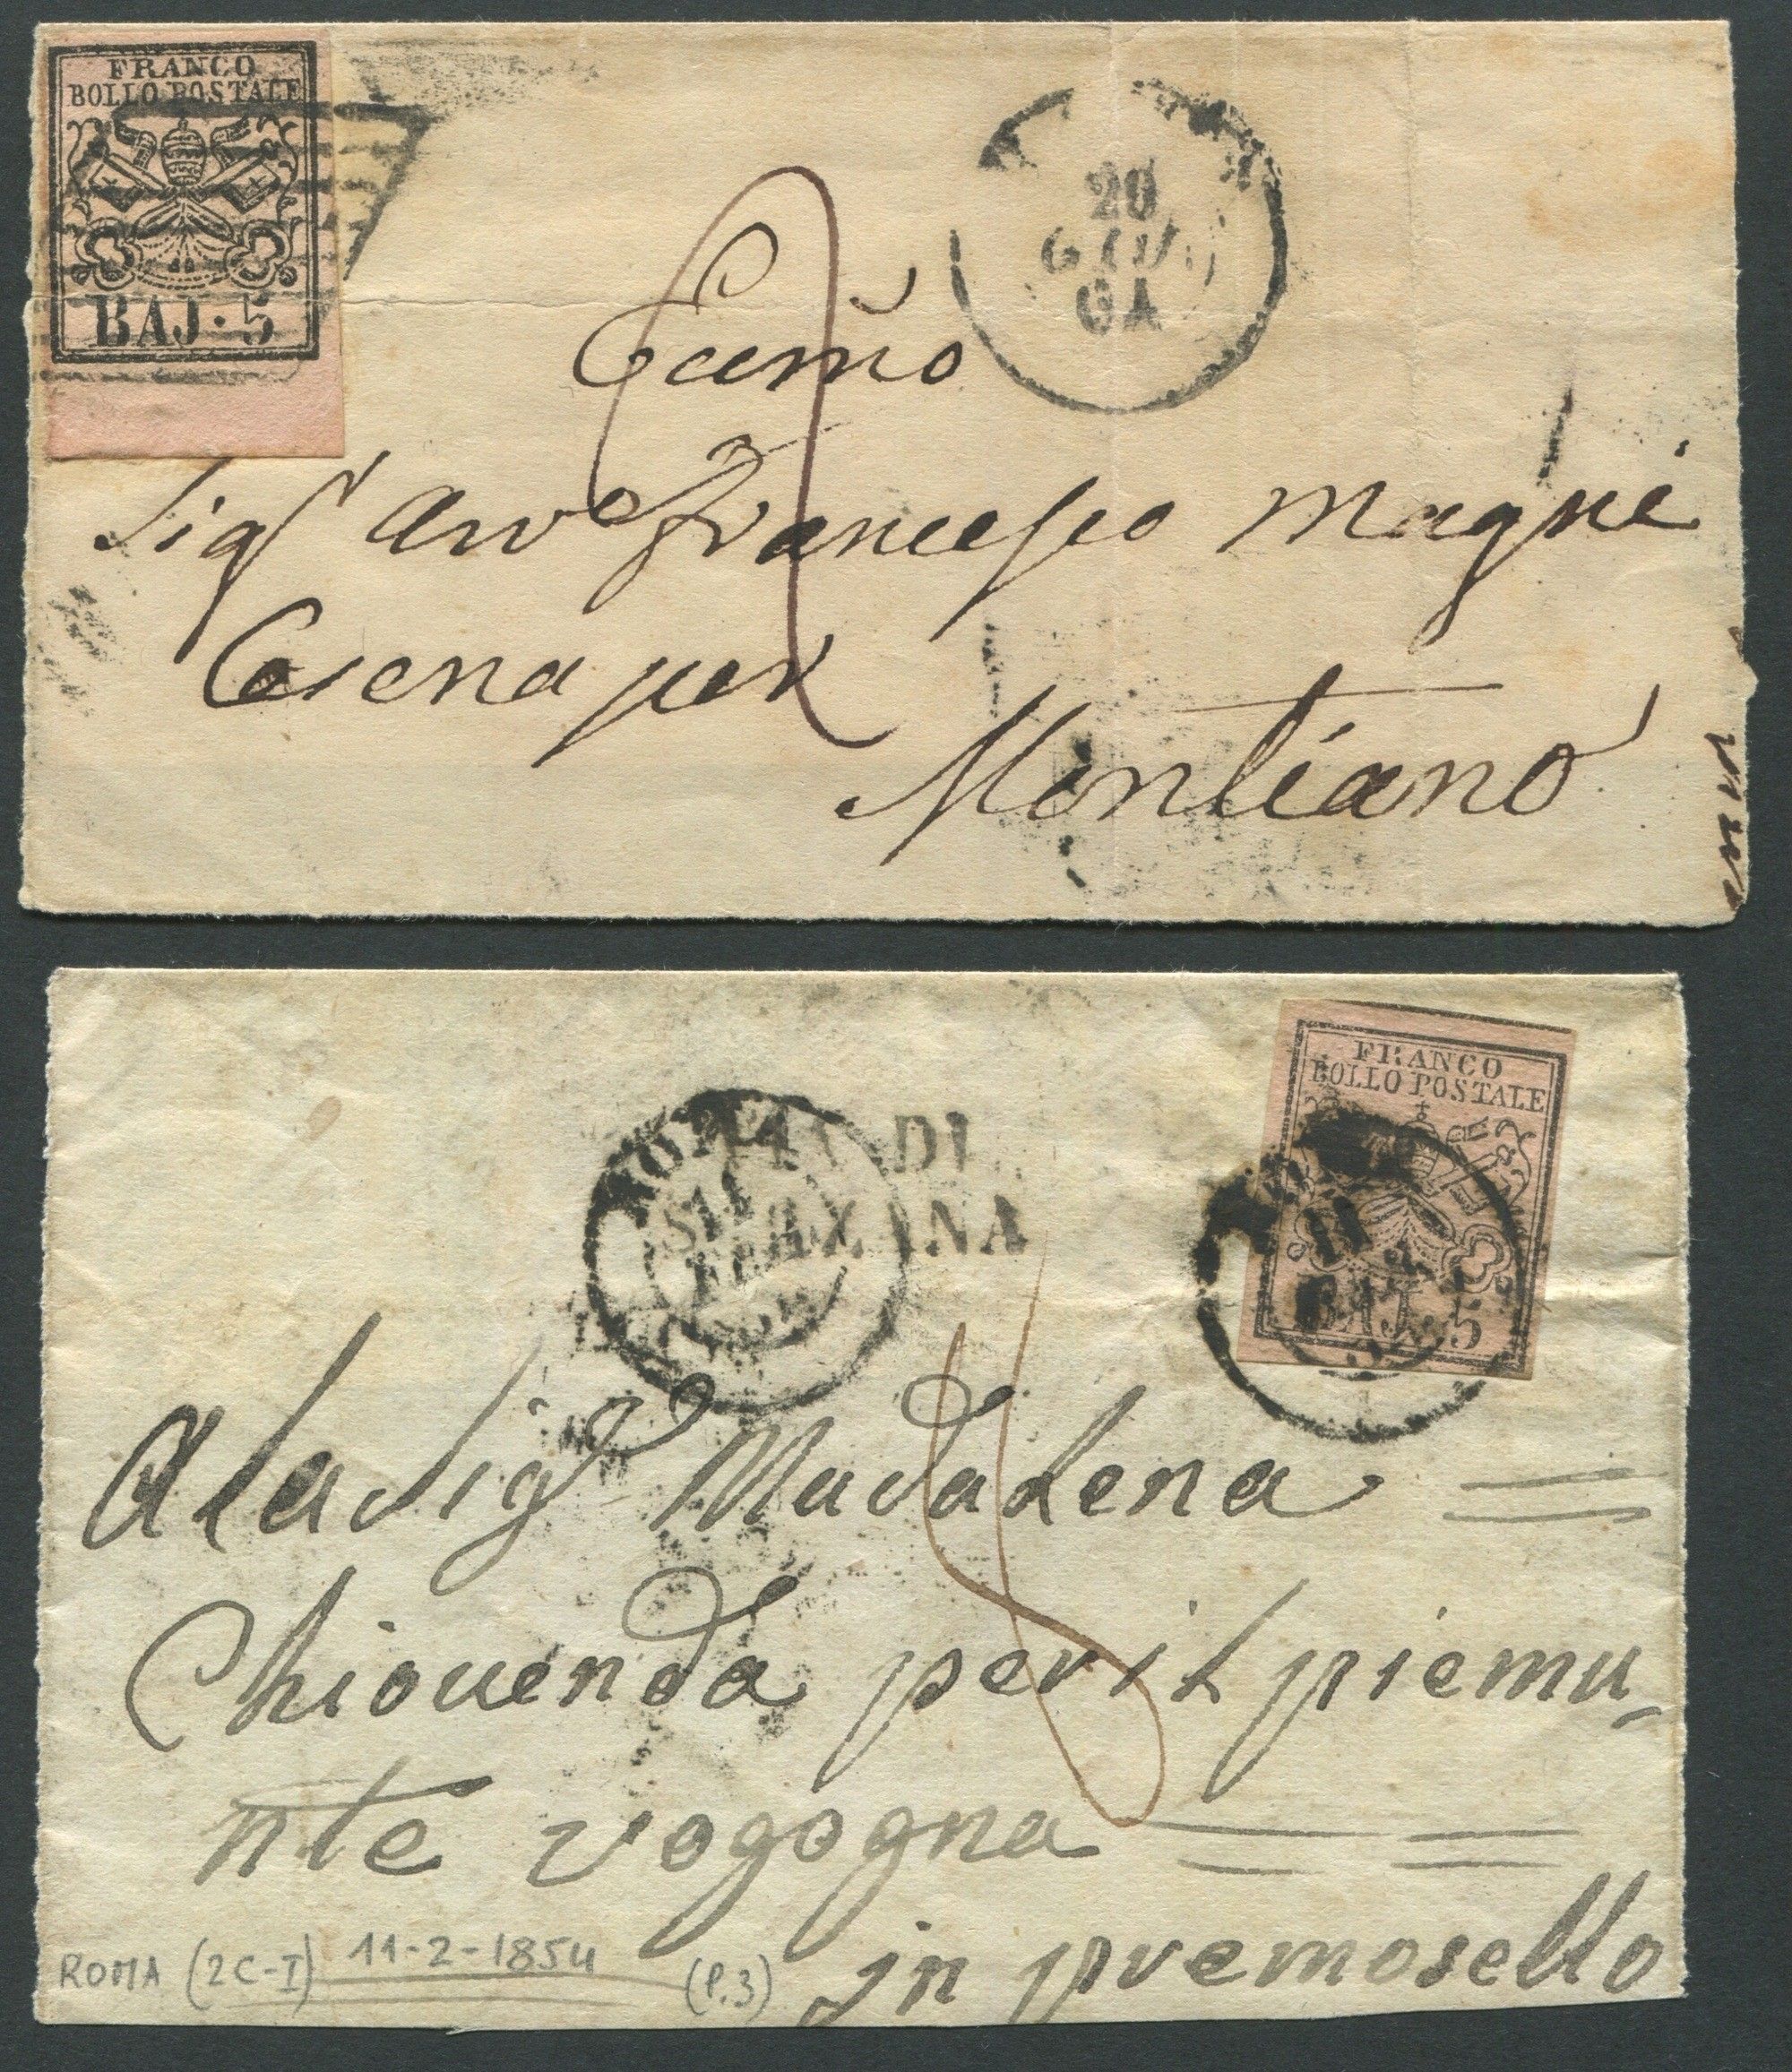 FRANCO
BOLLO POSTALE
BAJ·5
20
GIU
Sigr Francesco Magni
Cesena per
Montiano
FRANCO
BOLLO POSTALE
BAJ. 5
11
VIA DI
SARZANA
A la Sigra Madalena
Chiouenda per il piemu-
nte vogogna
in premosello
ROMA (2C-I) 11-2-1854 (P.3)